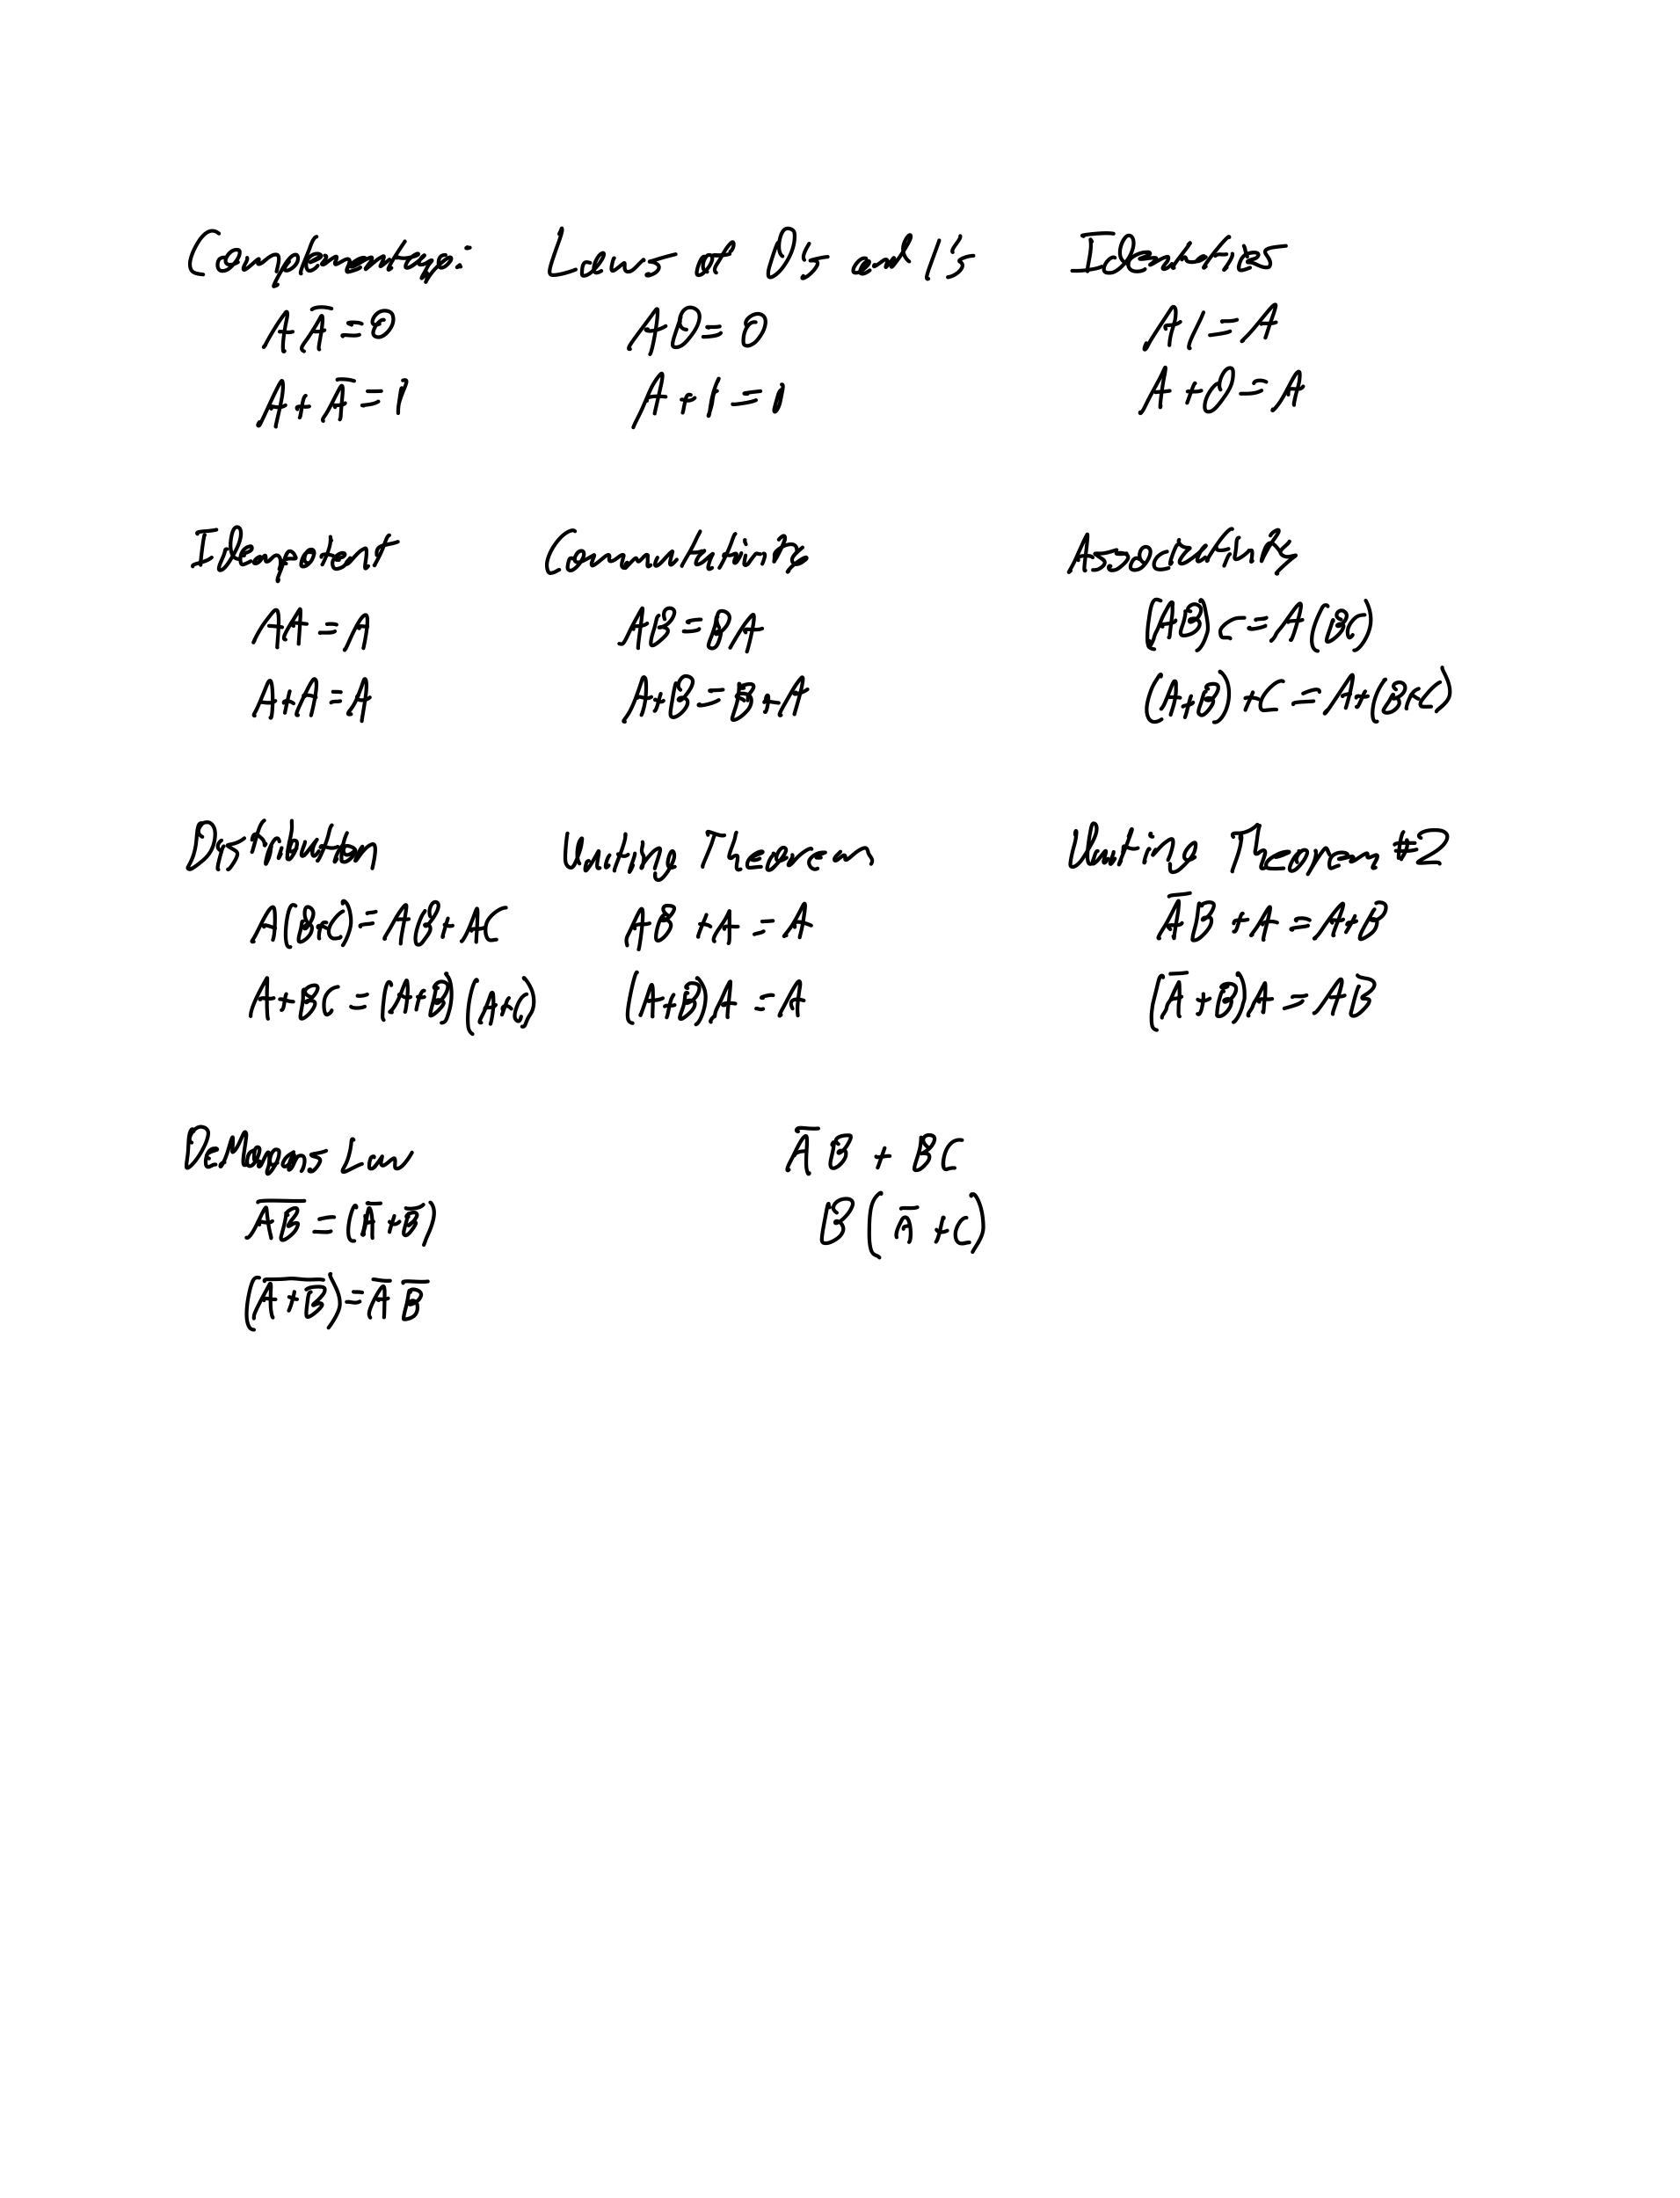 Complementary:
AA̅ = 0
A + A̅ = 1
Laws of 0's and 1's
A0 = 0
A + 1 = 1
Identities
A1 = A
A + 0 = A
Idempotent
AA = A
A+A = A
Commutativity
AB = BA
A+B = B+A
Associativity
(AB)C = A(BC)
(A+B)+C = A+(B+C)
Distribution
A(B+C) = AB+AC
A+BC = (A+B)(A+C)
Uniting Theorem
AB + A = A
(A+B)A = A
Uniting Theorem #2
A̅B + A = A+B
(A̅+B)A = AB
DeMorgans Law
A̅B̅ = (A̅+B̅)
(A̅+̅B̅) = A̅ B̅
A̅B + BC
B(A̅ + C)